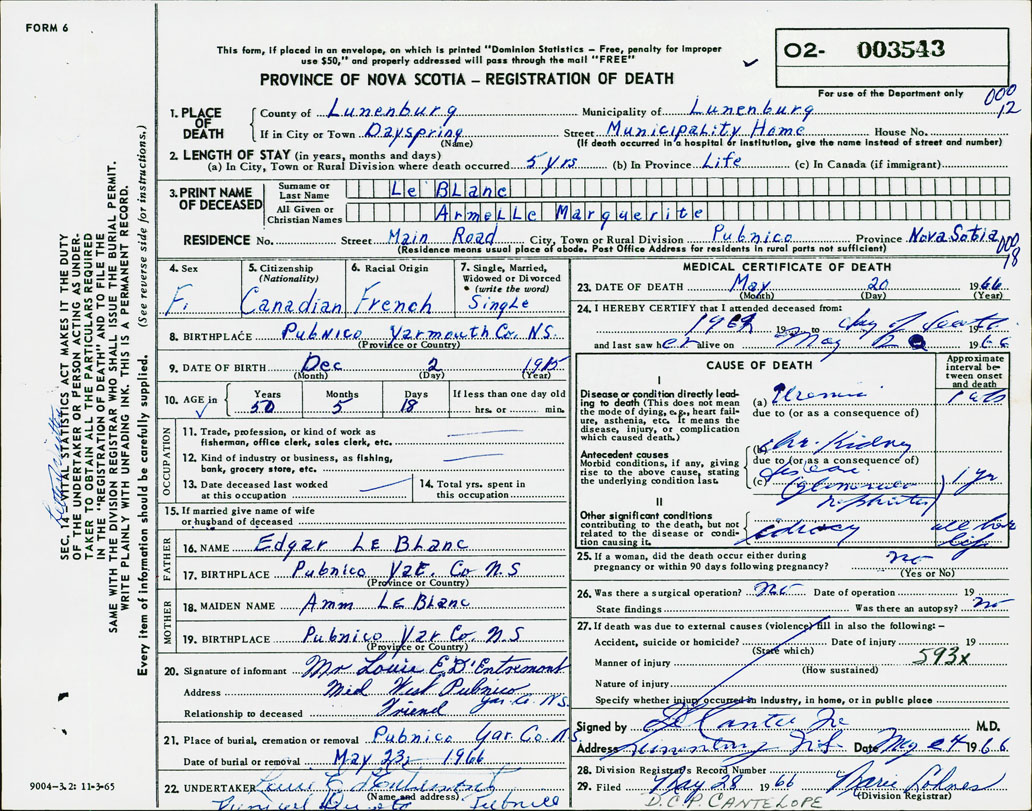 FORM 6
This form, if placed in an envelope, on which is printed "Dominion Statistics – Free, penalty for improper
use $50," and properly addressed will pass through the mail "FREE"
O2- 003543
PROVINCE OF NOVA SCOTIA – REGISTRATION OF DEATH
For use of the Department only
000
12
1. PLACE OF DEATH
County of Lunenburg Municipality of Lunenburg
If in City or Town Dayspring Street Municipality Home House No.
(Name) (If death occurred in a hospital or institution, give the name instead of street and number)
2. LENGTH OF STAY (in years, months and days)
(a) In City, Town or Rural Division where death occurred 5 yrs (b) In Province Life (c) In Canada (if immigrant)
3. PRINT NAME OF DECEASED
Surname or Last Name Le Blanc
All Given or Christian Names Armelle Marguerite
RESIDENCE No. Street Main Road City, Town or Rural Division Pubnico Province Nova Sotia
(Residence means usual place of abode. Post Office Address for residents in rural parts not sufficient)
000
18
4. Sex
F.
5. Citizenship
(Nationality)
Canadian
6. Racial Origin
French
7. Single, Married,
Widowed or Divorced
(write the word)
Single
8. BIRTHPLACE Pubnico Yarmouth Co. N.S.
(Province or Country)
9. DATE OF BIRTH Dec 2 1915
(Month) (Day) (Year)
10. AGE in
Years Months Days If less than one day old
50 5 18 hrs. or min.
OCCUPATION
11. Trade, profession, or kind of work as
fisherman, office clerk, sales clerk, etc.
12. Kind of industry or business, as fishing,
bank, grocery store, etc.
13. Date deceased last worked
at this occupation
14. Total yrs. spent in
this occupation
15. If married give name of wife
or husband of deceased
FATHER
16. NAME Edgar Le Blanc
17. BIRTHPLACE Pubnico Yar. Co N.S
(Province or Country)
MOTHER
18. MAIDEN NAME Amm Le Blanc
19. BIRTHPLACE Pubnico Yar Co. N.S
(Province or Country)
20. Signature of informant Mr Louis E. D'Entremont
Address Mid West Pubnico Yar. Co. N.S.
Relationship to deceased Friend
21. Place of burial, cremation or removal Pubnico Yar. Co. N.S.
Date of burial or removal May 23, 1966
22. UNDERTAKER Louis E. D'Entremont
(Name and address)
Pubnico
MEDICAL CERTIFICATE OF DEATH
23. DATE OF DEATH May 20 1966
(Month) (Day) (Year)
24. I HEREBY CERTIFY that I attended deceased from:
19 to day of death 19
and last saw her alive on May 1966
CAUSE OF DEATH
Approximate interval between onset and death
I
Disease or condition directly leading to death (This does not mean the mode of dying, e.g., heart failure, asthenia, etc. It means the disease, injury, or complication which caused death.)
(a) Uremia
due to (or as a consequence of)
Antecedent causes
Morbid conditions, if any, giving rise to the above cause, stating the underlying condition last.
(b) Chr. Kidney
due to (or as a consequence of)
(c) nephritis 1 yr
II
Other significant conditions contributing to the death, but not related to the disease or condition causing it.
idiocy all her life
25. If a woman, did the death occur either during
pregnancy or within 90 days following pregnancy? no
(Yes or No)
26. Was there a surgical operation? no Date of operation 19
State findings Was there an autopsy? no
27. If death was due to external causes (violence) fill in also the following: –
Accident, suicide or homicide? Date of injury 19
(State which)
Manner of injury 593x
(How sustained)
Nature of injury
Specify whether injury occurred in industry, in home, or in public place
Signed by M.D.
Address Lunenburg N.S. Date May 24 1966
28. Division Registrar's Record Number
29. Filed May 28 1966
(Division Registrar)
D.C.P. CANTELOPE
SEC. 14 – VITAL STATISTICS ACT MAKES IT THE DUTY
OF THE UNDERTAKER OR PERSON ACTING AS UNDER-
TAKER TO OBTAIN ALL THE PARTICULARS REQUIRED
IN THE "REGISTRATION OF DEATH" AND TO FILE THE
SAME WITH THE DIVISION REGISTRAR WHO SHALL ISSUE THE BURIAL PERMIT.
WRITE PLAINLY WITH UNFADING INK. THIS IS A PERMANENT RECORD.
Every item of information should be carefully supplied. (See reverse side for instructions.)
9004–3.2: 11-3-65